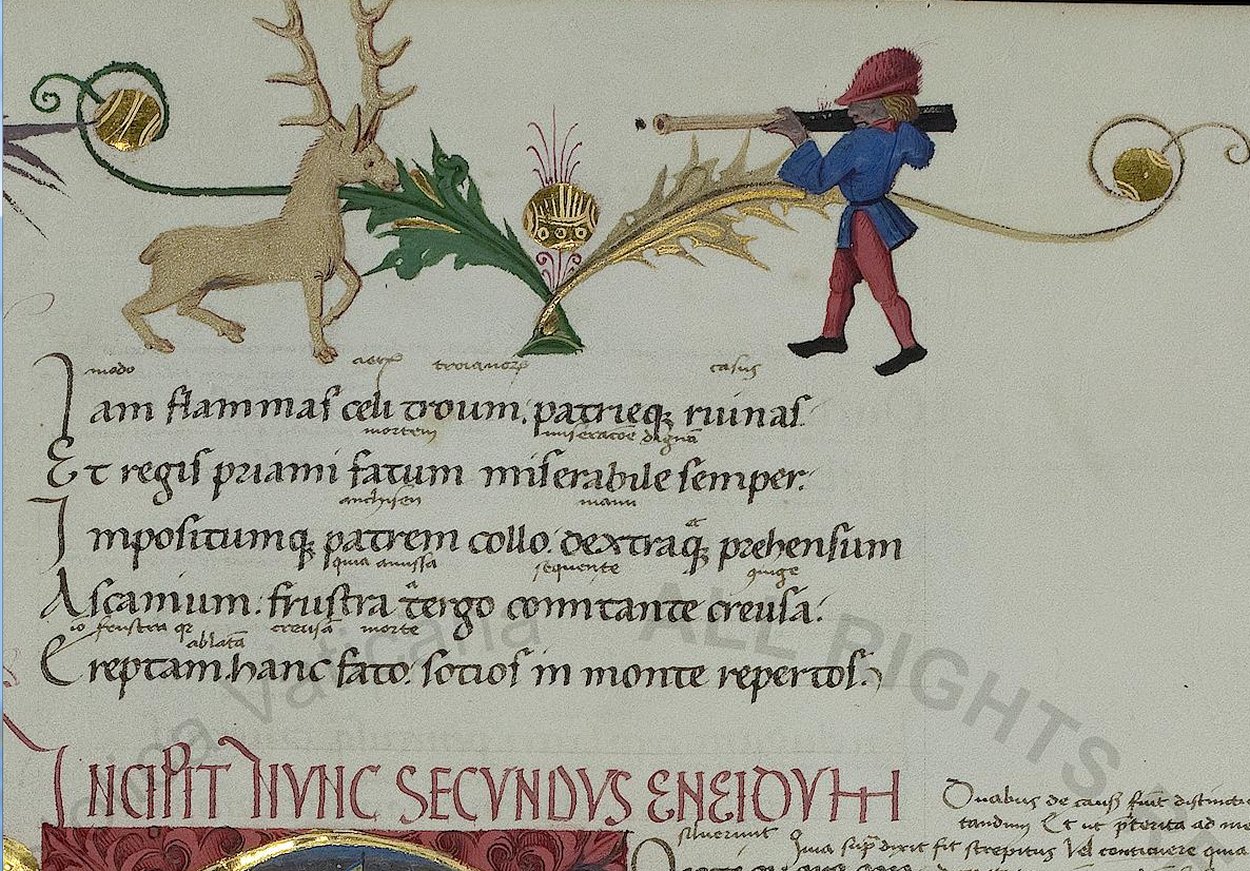 modo troianorꝝ casus
Iam flammas celi troum. patrieqꝫ ruinas.
mortem miseratōe dignā
Et regis priami fatum miserabile semper:
anchisen manu
Impositumqꝫ patrem collo. dextraqꝫ prehensum
quia amissa sequente
Ascanium: frustra a tergo comitante creusa:
frustra creusā morte
ablatā
Ereptam. hanc fato. socios in monte repertos.
INCIPIT NVNC SECVNDVS ENEIDVM
Duabus de causis
tandum Et ut p̄terita ad
siluerunt
fit strepitus Vel conticuere quia
Vaticana ALL RIGHTS